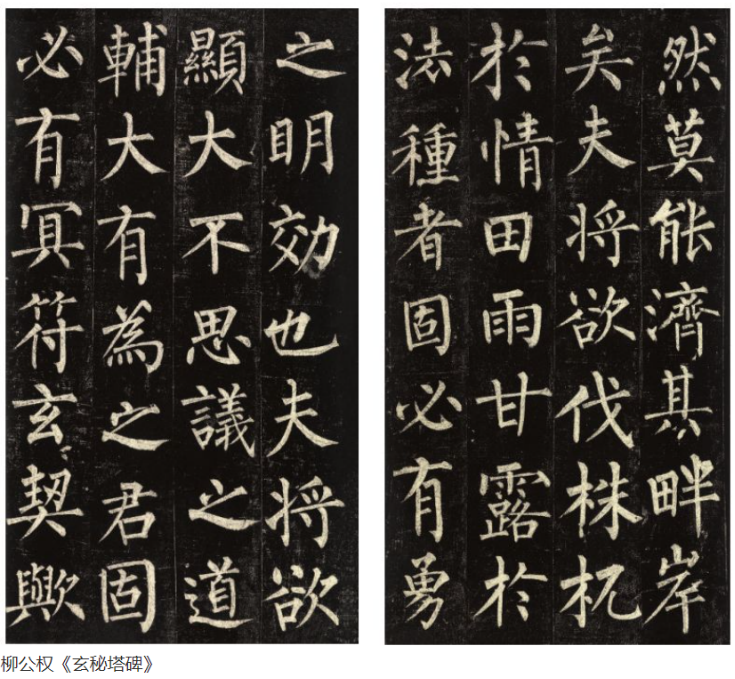 然莫能濟其畔岸
矣夫将欲伐株杌
於情田雨甘露於
法種者固必有勇
之明効也夫将欲
顯大不思議之道
輔大有為之君固
必有冥符玄契歟
柳公权《玄秘塔碑》